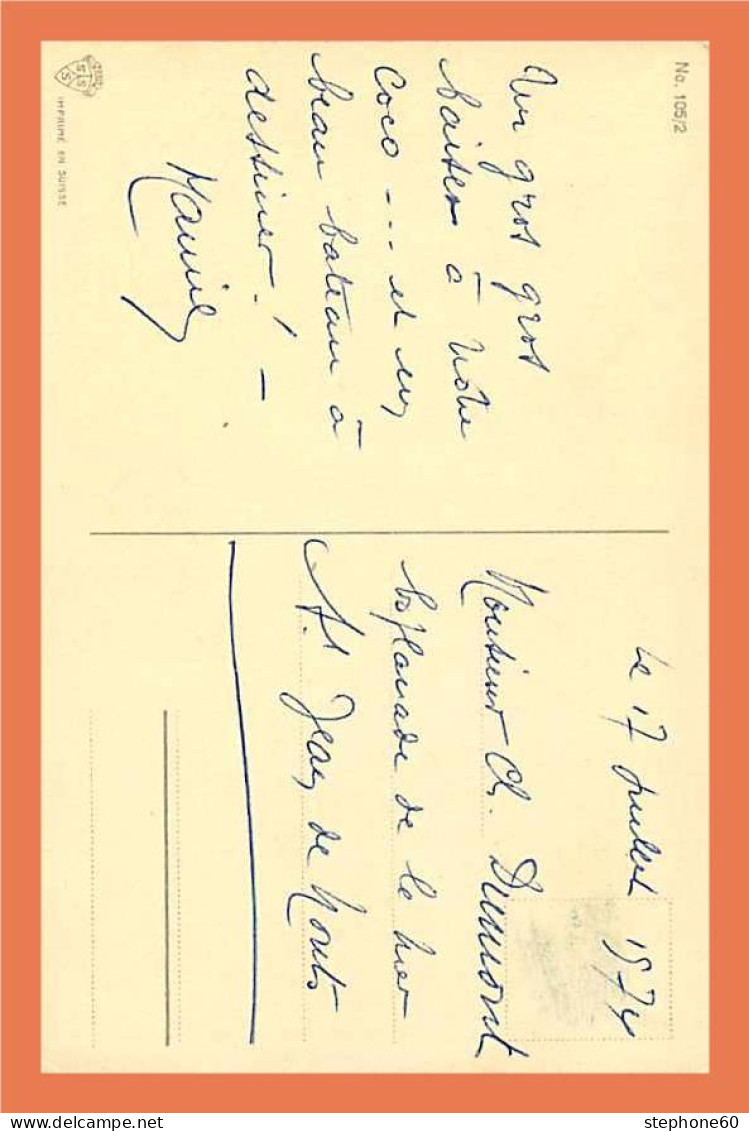 No. 105/2
Un gros gros
baiser à notre
Coco --- et un
beau bateau à
dessiner ! -
Le 17 Juillet 1974
Monsieur Ch. Dumont
Esplanade de la Mer
St Jean de Monts
IMPRIMÉ EN SUISSE
stephone60